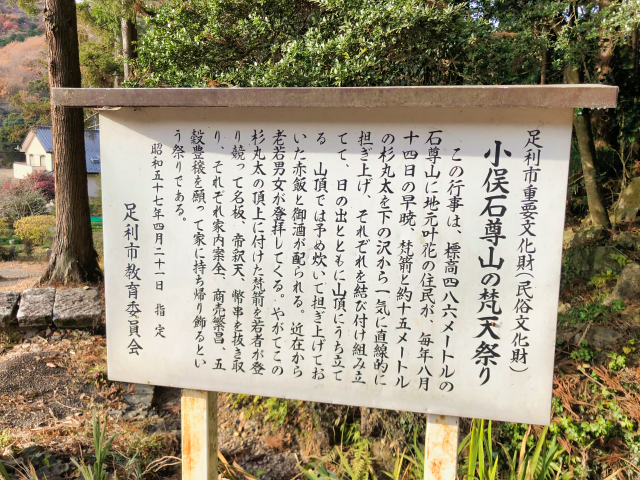 足利市重要文化財(民俗文化財)
小俣石尊山の梵天祭り
この行事は、標高四八六メートルの
石尊山に地元叶花の住民が、毎年八月
十四日の早暁、梵箭と約十五メートル
の杉丸太を下の沢から一気に直線的に
担ぎ上げ、それぞれを結び付け組み立
てて、日の出とともに山頂にうち立て
る。山頂では予め炊いて担ぎ上げてお
いた赤飯と御酒が配られる。近在から
老若男女が登拝してくる。やがてこの
杉丸太の頂上に付けた梵箭を若者が登
り競って名板、帝釈天、幣串を抜き取
り、それぞれ家内安全、商売繁昌、五
穀豊穣を願って家に持ち帰り飾るとい
う祭りである。
昭和五十七年四月二十一日 指定
足利市教育委員会